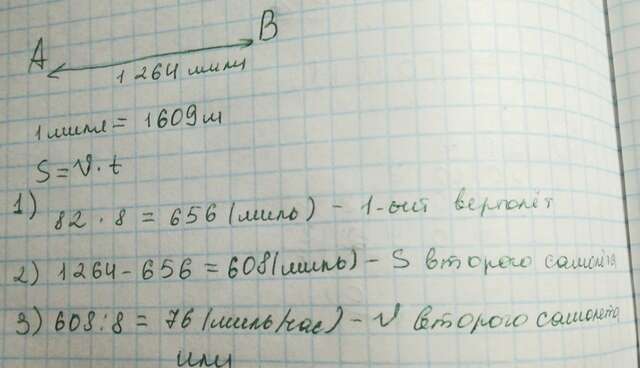 A B
1 264 мили
1 миля = 1609 м
S = v · t
1) 82 · 8 = 656 (миль) - 1-ый вертолёт
2) 1264 - 656 = 608 (миль) - S второго самолёта
3) 608 : 8 = 76 (миль/час) - v второго самолёта
или